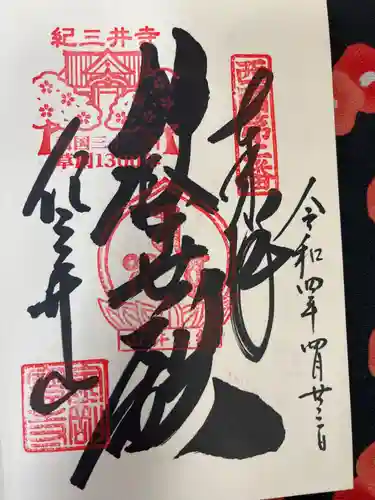 西国第二番
奉拝
令和四年四月廿三日
紀三井寺
西国三十三所
草創1300年
救世殿
紀三井山